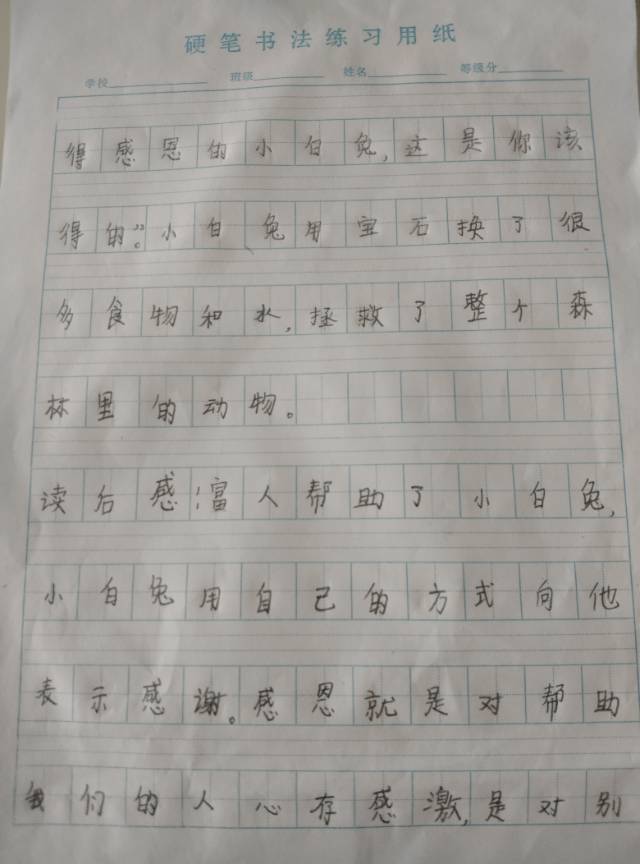 硬笔书法练习用纸
学校 班级 姓名 等级分
得感恩的小白兔,这是你该
得的”。小白兔用宝石换了很
多食物和水,拯救了整个森
林里的动物。
读后感:富人帮助了小白兔,
小白兔用自己的方式向他
表示感谢。感恩就是对帮助
我们的人心存感激,是对别